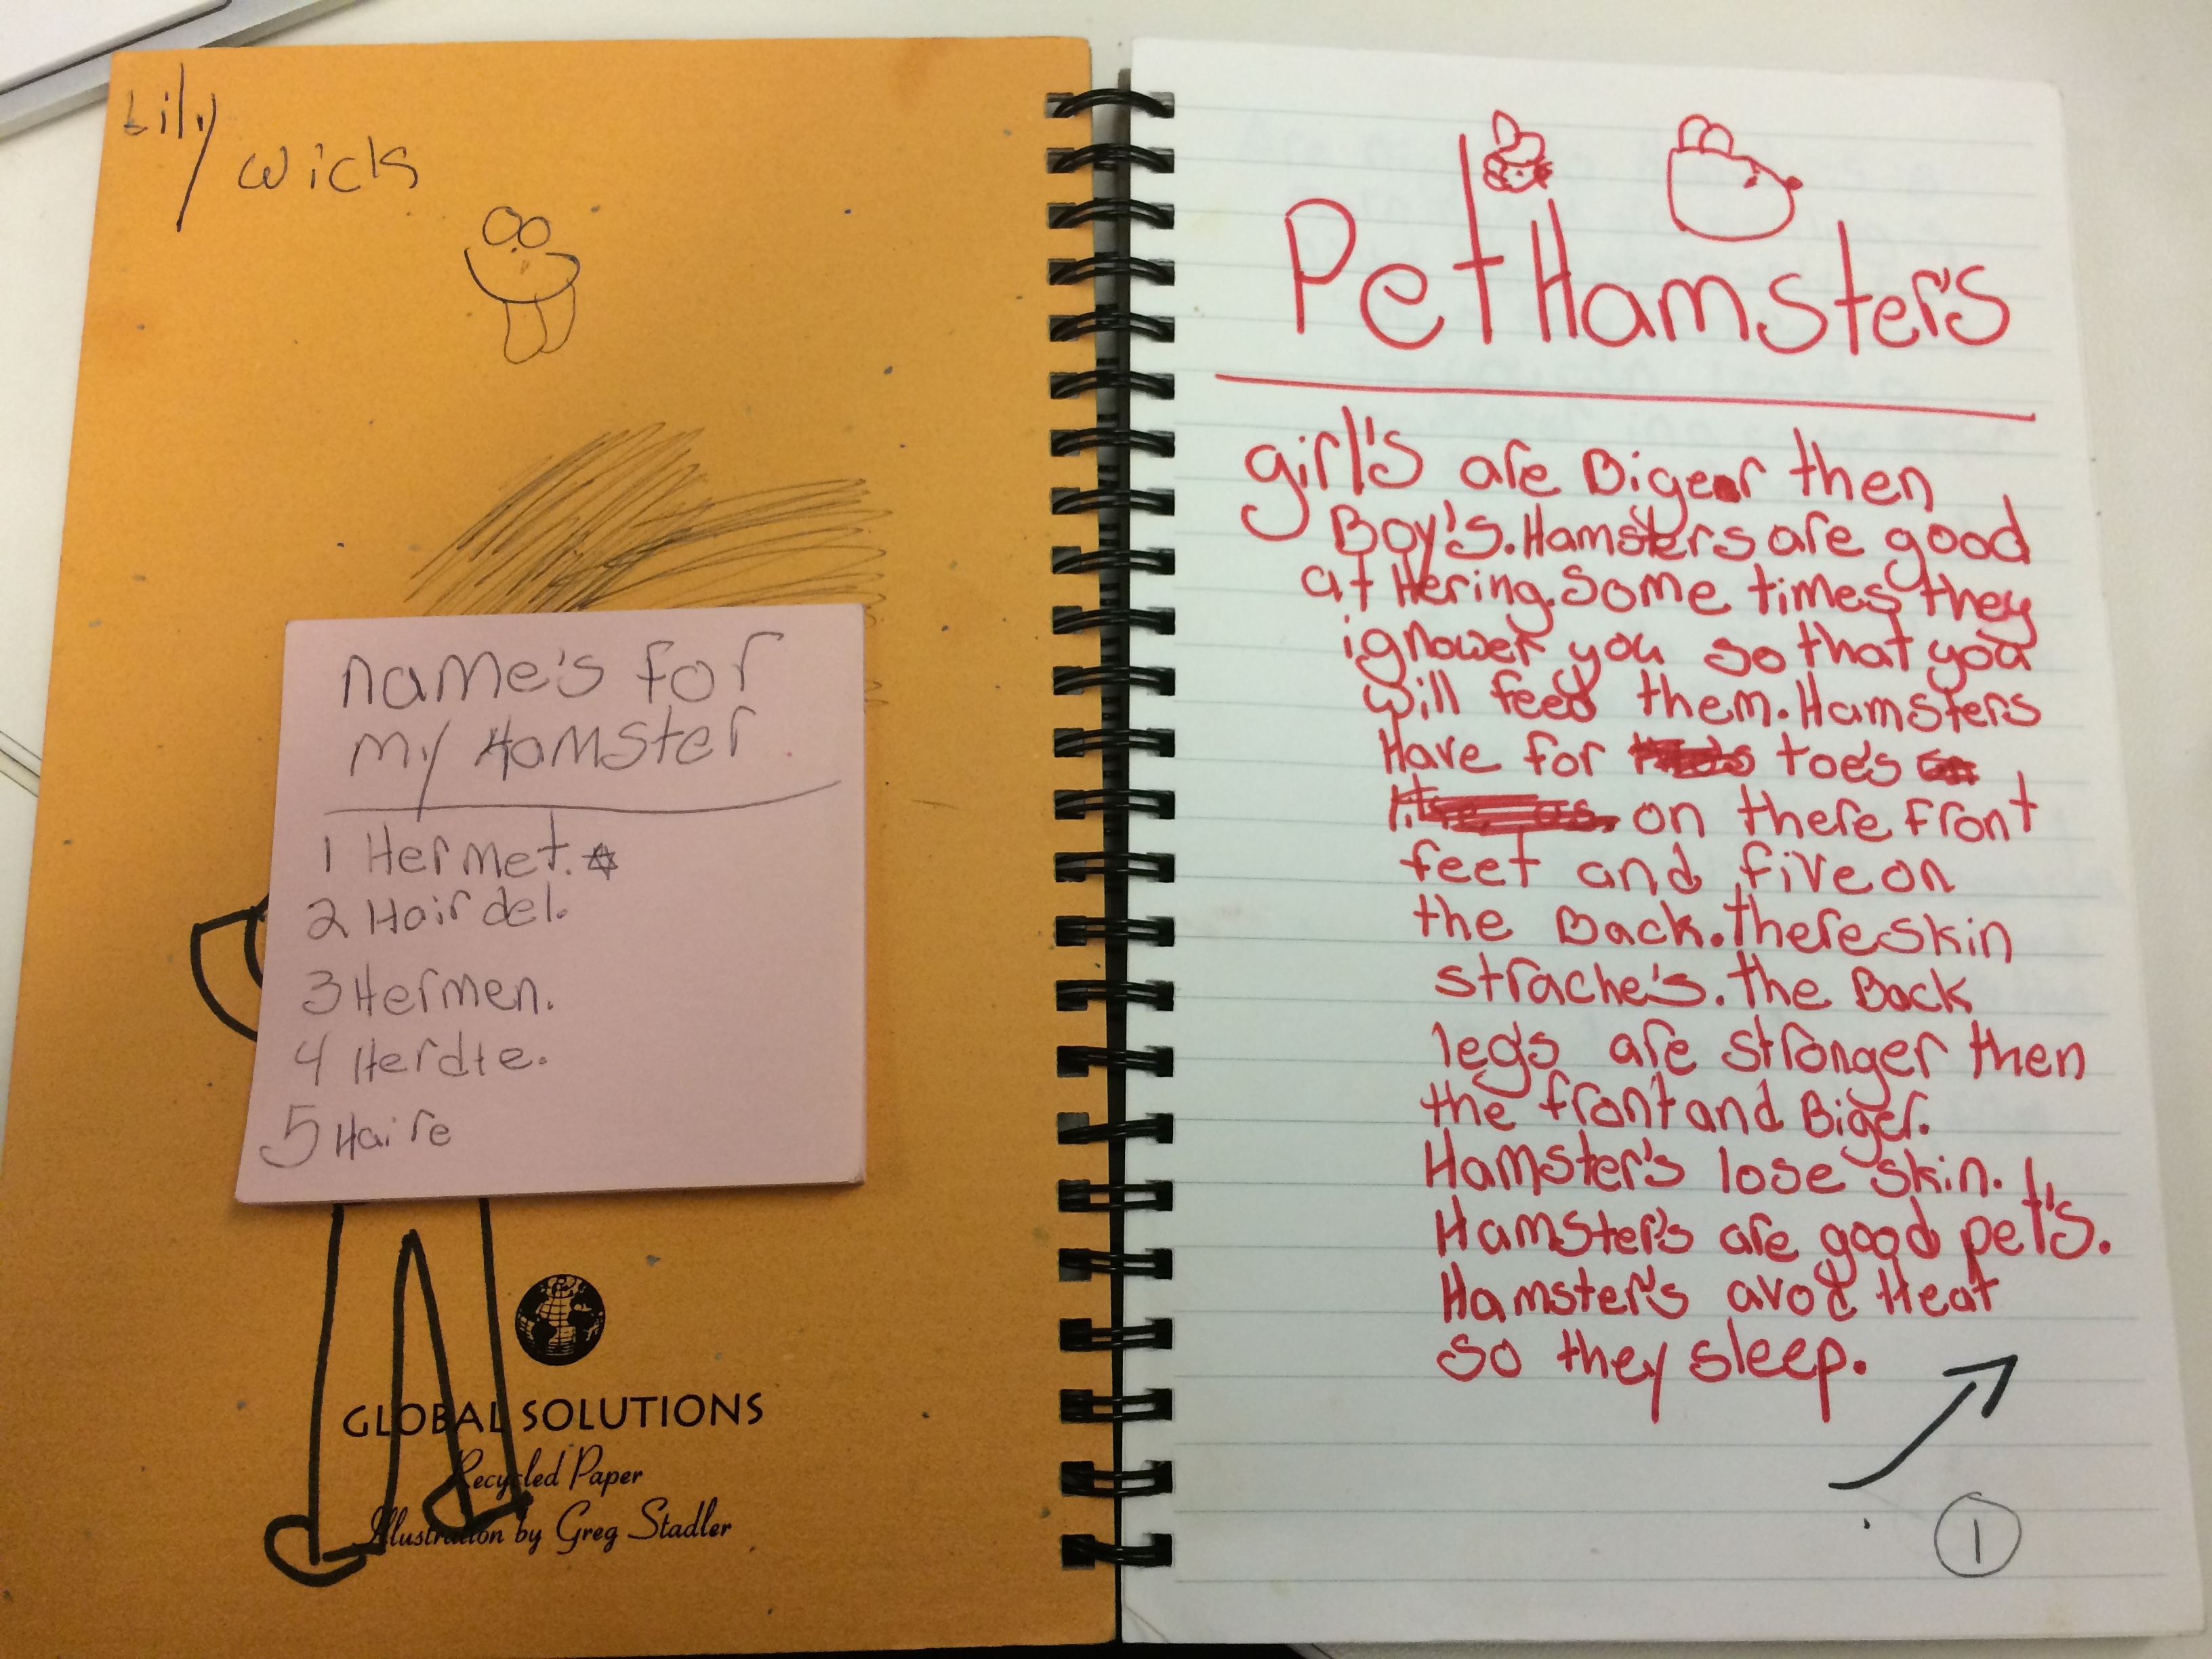 Lily
wicks
name's for
my Hamster
1 Hermet.
2 Hairdel.
3 Hermen.
4 Herdie.
5 Haire
GLOBAL SOLUTIONS
Recycled Paper
Illustration by Greg Stadler
Pet Hamster's
girl's are Biger then
Boy's. Hamsters are good
at Hering. Some times they
ignower you so that you
will feed them. Hamsters
Have for toe's
on there front
feet and five on
the Back. there skin
strache's. the Back
leg's are stronger then
the front and Biger.
Hamster's lose skin.
Hamster's are good pet's.
Hamster's avod Heat
so they sleep.
1